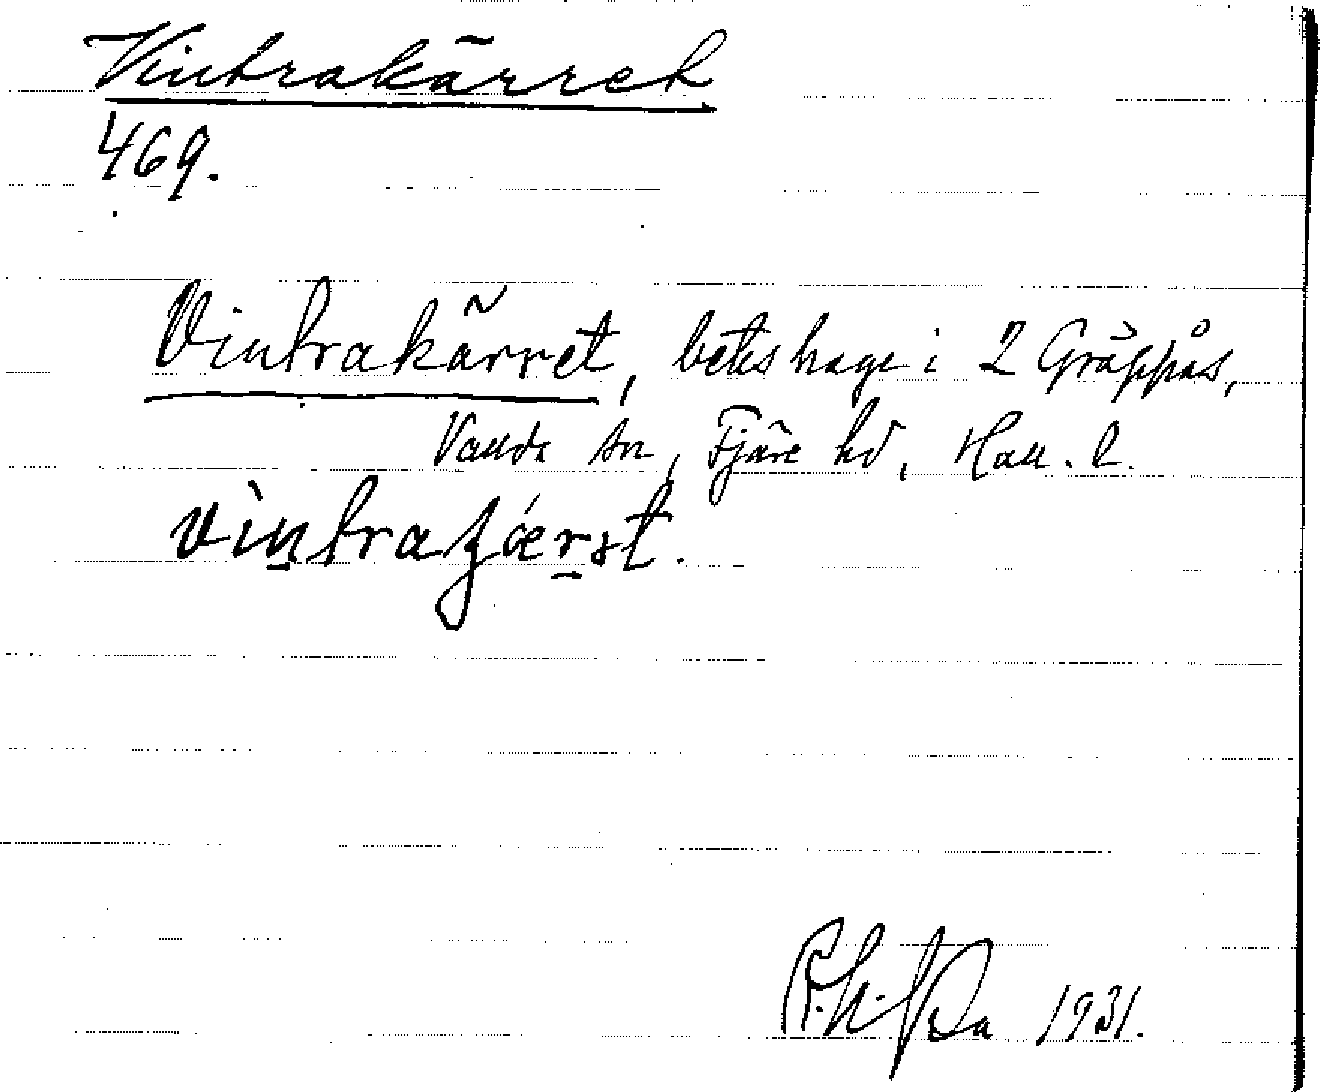 Vintrakärret
469.
Vintrakärret, beteshage i 2 Gräppås,
Vallda sn, Fjäre hd, Hall. l.
1931.